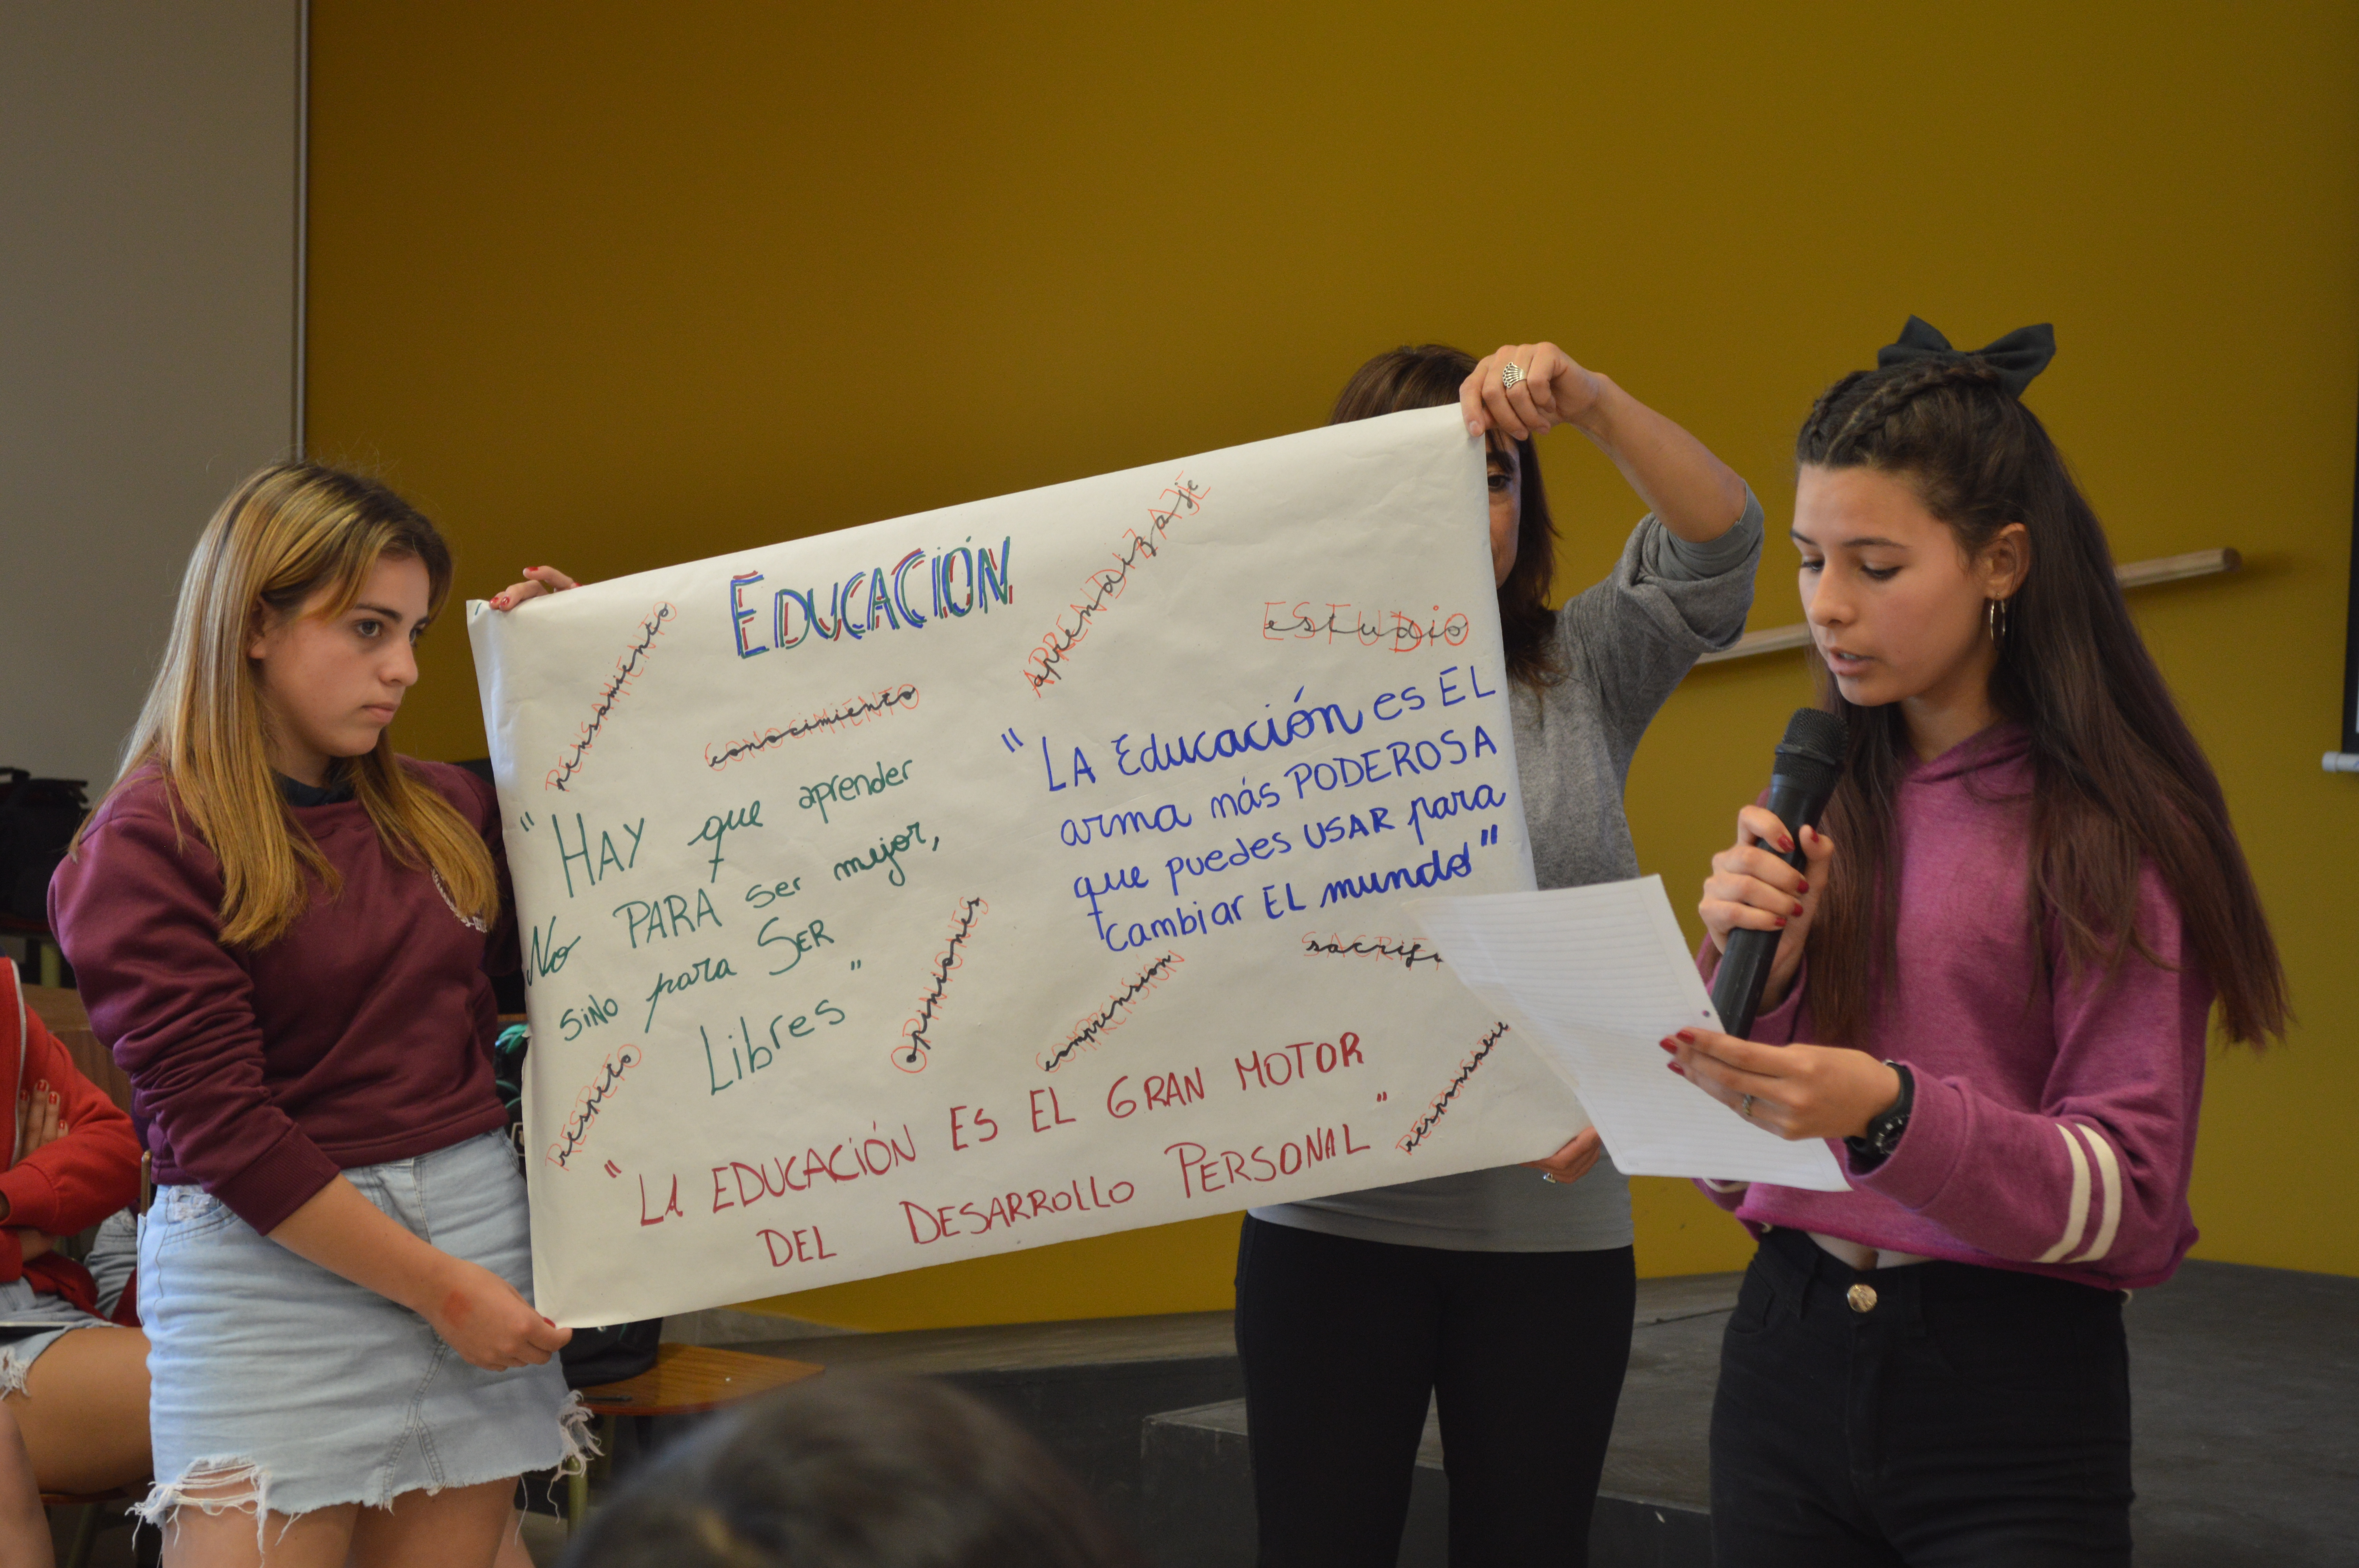 EDUCACIÓN
PENSAMIENTO
pensamiento
CONOCIMIENTO
conocimiento
APRENDIZAJE
aprendizaje
ESTUDIO
estudio
"HAY que aprender
No PARA ser mejor,
siNo para SER
Libres"
"LA Educación es EL
arma más PODEROSA
que puedes USAR para
cambiar EL mundo"
OPINIONES
opiniones
COMPRENSIÓN
comprensión
RESPETO
respeto
"LA EDUCACIÓN ES EL GRAN MOTOR
DEL DESARROLLO PERSONAL"